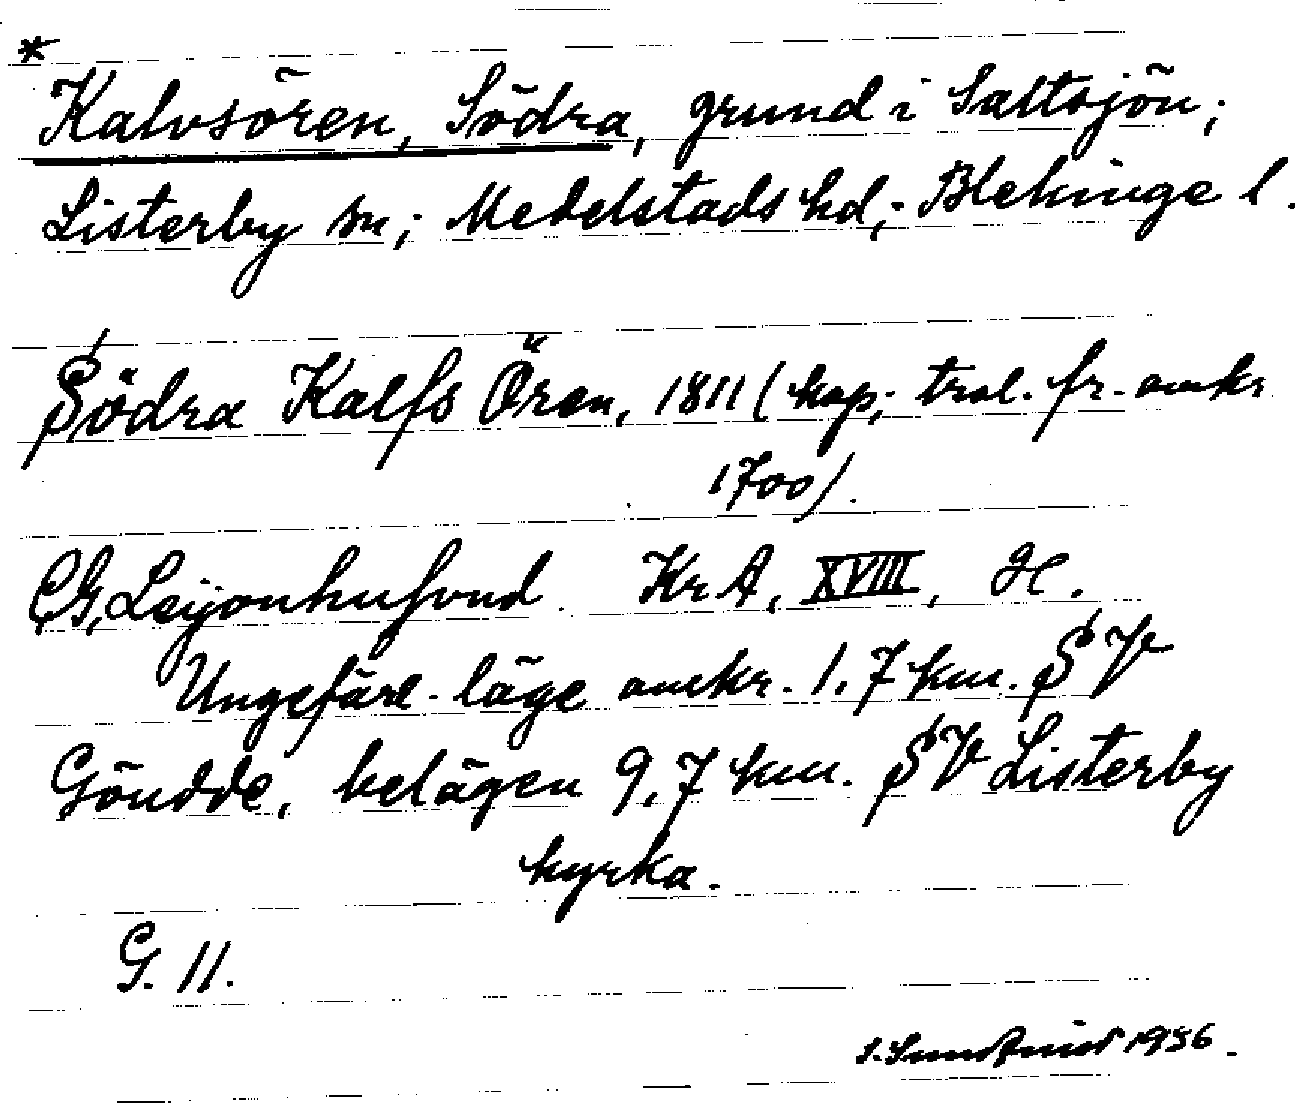 *
Kalvsören, Södra, grund i Saltsjön;
Listerby sn; Medelstads hd; Blekinge l.
Södra Kalfs Ören, 1811 (kop; trol. fr. omkr
1700).
CG, Leijonhufvud. KrA, XVIII, H.
Ungefärl. läge omkr. 1,7 km. SV
Göudde, belägen 9,7 km. SV Listerby
kyrka.
G. 11.
S. Sundqvist 1936.